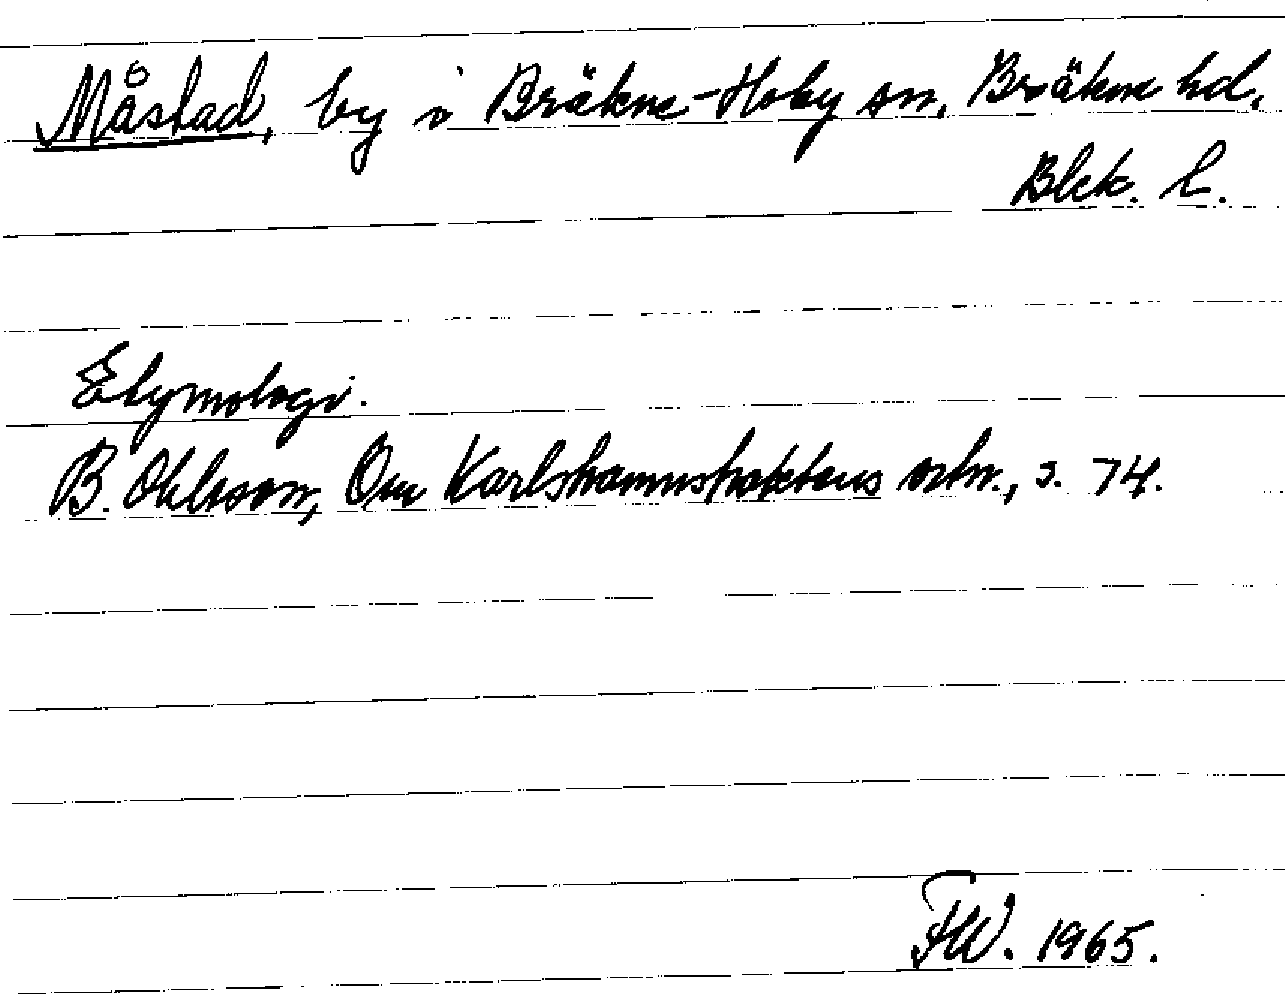 Måstad, by i Bräkne-Hoby sn, Bräkne hd,
Blek. l.
Etymologi.
B. Ohlsson, Om Karlshamnstraktens ortn., s. 74.
FW. 1965.